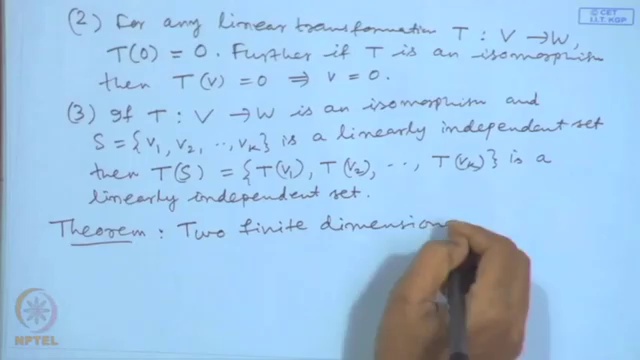 © CET
I.I.T. KGP
(2) For any linear transformation T : V → W,
T(0) = 0. Further if T is an isomorphism
then T(v) = 0 ⟹ v = 0.
(3) If T : V → W is an isomorphism and
S = {v₁, v₂, .., vₖ} is a linearly independent set
then T(S) = {T(v₁), T(v₂), .., T(vₖ)} is a
linearly independent set.
Theorem : Two finite dimension
NPTEL